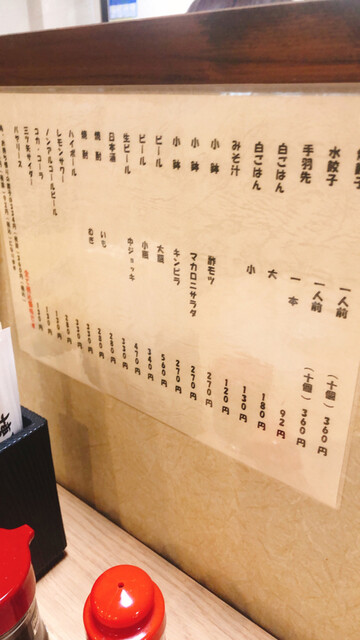 餃子 一人前 (十個) 360円
水餃子 一人前 (十個) 360円
手羽先 一本 92円
白ごはん 大 180円
白ごはん 小 130円
みそ汁 120円
小鉢 酢モツ 270円
小鉢 マカロニサラダ 270円
小鉢 キンピラ 270円
ビール 大瓶 560円
ビール 小瓶 340円
生ビール 中ジョッキ 470円
日本酒 330円
焼酎 いも 280円
焼酎 むぎ 280円
ハイボール 330円
レモンサワー 330円
ノンアルコールビール 280円
コカ・コーラ 130円
三ツ矢サイダー 130円
バヤリース 130円